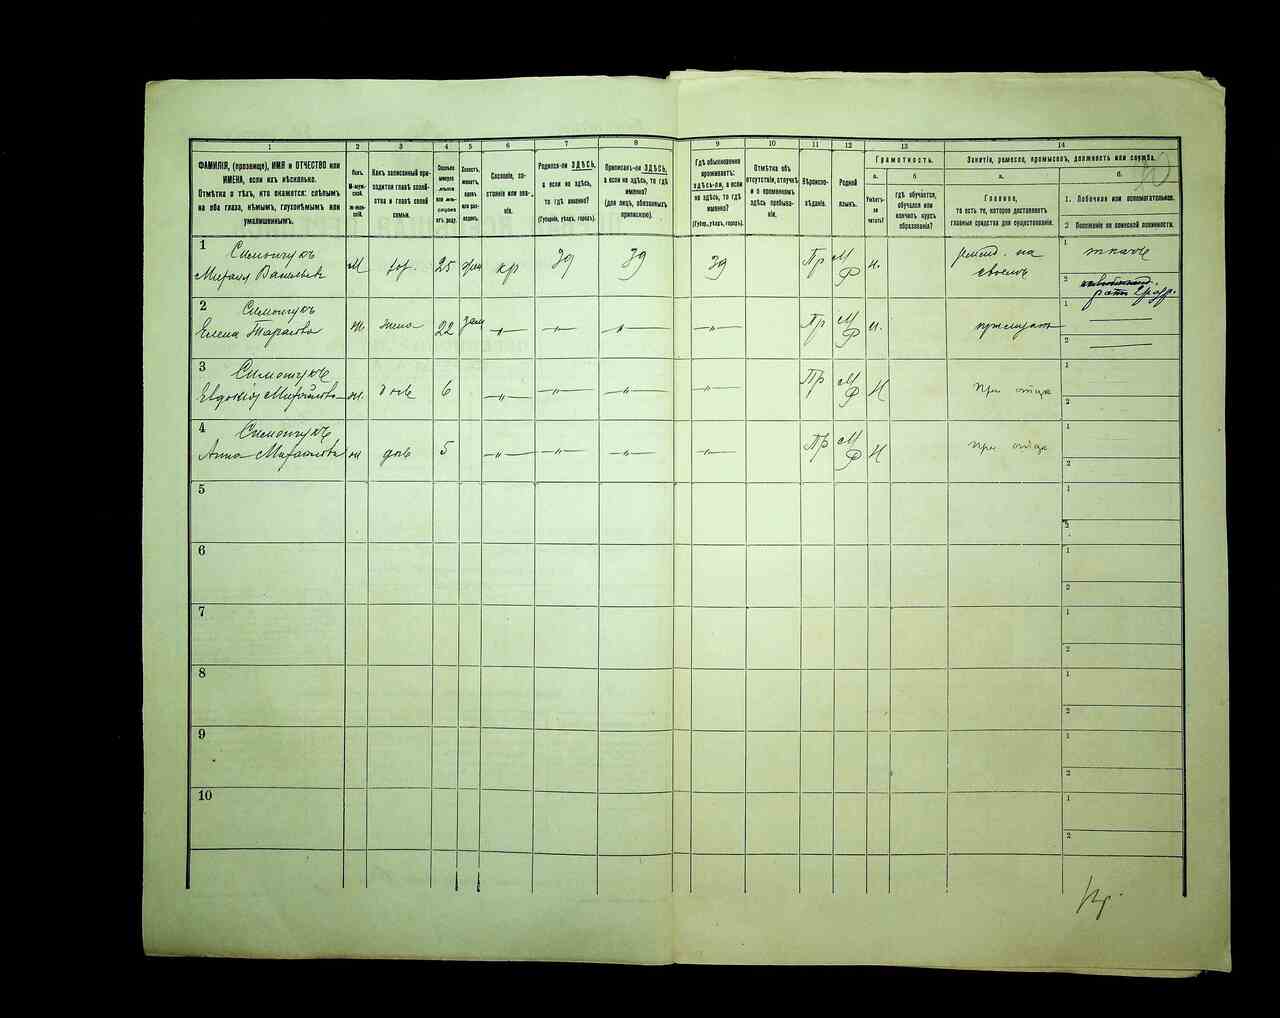 1 2 3 4 5 6 7 8 9 10 11 12 13 14
ФАМИЛІЯ, (прозвище), ИМЯ и ОТЧЕСТВО или
ИМЕНА, если ихъ нѣсколько.
Отмѣтка о тѣхъ, кто окажется: слѣпымъ
на оба глаза, нѣмымъ, глухонѣмымъ или
умалишеннымъ.
Полъ.
М-муж-
ской.
Ж-жен-
скій.
Какъ записанный при-
ходится главѣ хозяй-
ства и главѣ своей
семьи.
Сколько
минуло
лѣтъ
или мѣ-
сяцевъ
отъ роду.
Холостъ,
женатъ,
вдовъ
или раз-
веденъ.
Сословіе, со-
стояніе или зва-
ніе.
Родился-ли ЗДѢСЬ,
а если не здѣсь,
то гдѣ именно?
(Губернія, уѣздъ, городъ).
Приписанъ-ли ЗДѢСЬ,
а если не здѣсь, то гдѣ
именно?
(для лицъ, обязанныхъ
припискою).
Гдѣ обыкновенно
проживаетъ:
здѣсь-ли, а если
не здѣсь, то гдѣ
именно?
(Губер., уѣздъ, городъ).
Отмѣтка объ
отсутствіи, отлучкѣ
и о временномъ
здѣсь пребыва-
ніи.
Вѣроиспо-
вѣданіе.
Родной
языкъ.
Грамотность.
а. б
Умѣетъ-
ли
читать?
гдѣ обучается,
обучался или
кончилъ курсъ
образованія?
Занятіе, ремесло, промыселъ, должность или служба.
а. б.
Главное,
то есть то, которое доставляетъ
главныя средства для существованія.
1. Побочное или вспомогательное.
2 Положеніе по воинской повинности.
1 Симончукъ
Михаил Васильев М хоз. 25 жен кр Зд Зд Зд Пр М Р н. на своемъ 1 ткачъ
2
2 Симончукъ
Елена Тарасова ж. жена 22 зам —„— —„— —„— —„— Пр М Р н. 1 —
2 —
3 Симончукъ
Евдокія Михайлова ж. дочь 6 —„— —„— —„— —„— Пр М Р Н При отцѣ 1
2
4 Симончукъ
Анна Михайлова ж дочь 5 —„— —„— —„— —„— Пр М Р Н При отцѣ 1
2
5 1
2
6 1
2
7 1
2
8 1
2
9 1
2
10 1
2